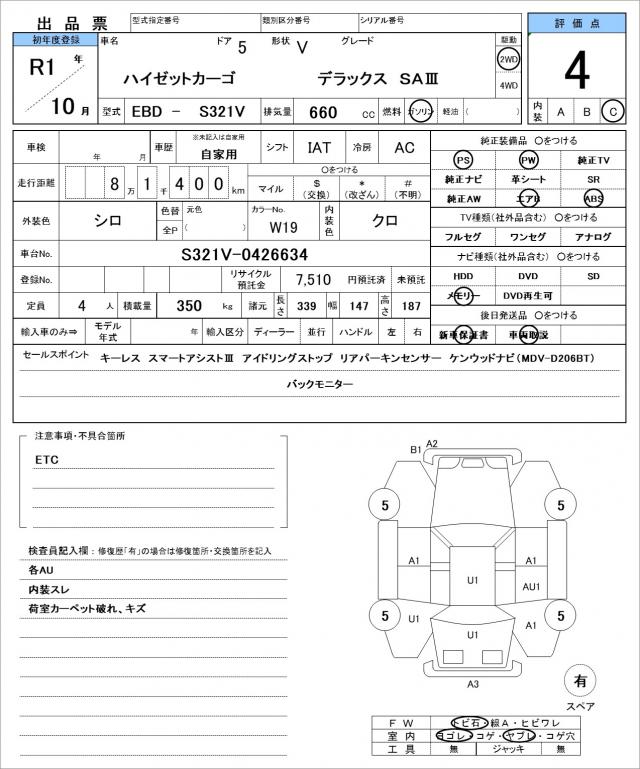 出品票 型式指定番号 類別区分番号 シリアル番号 評価点
初年度登録 車名 ドア 5 形状 V グレード 駆動
R1 年 ハイゼットカーゴ デラックス SAⅢ 2WD 4
10 月 4WD
型式 EBD － S321V 排気量 660 cc 燃料 ガソリン 軽油 ( ) 内装 A B C
車検 年 月 車歴 ※未記入は自家用 自家用 シフト IAT 冷房 AC 純正装備品 〇をつける
〇をつける PS PW 純正TV
走行距離 8 万 1 千 4 0 0 km マイル $ (交換) * (改ざん) # (不明) 純正ナビ 革シート SR
純正AW エアB ABS
外装色 シロ 色替 元色 カラーNo. 内装色 クロ TV種類(社外品含む) 〇をつける
全P ( ) W19 フルセグ ワンセグ アナログ
車台No. S321V-0426634 ナビ種類(社外品含む) 〇をつける
登録No. リサイクル預託金 7,510 円預託済 未預託 HDD DVD SD
メモリー DVD再生可
定員 4 人 積載量 350 kg 諸元 長さ 339 幅 147 高さ 187 後日発送品 〇をつける
輸入車のみ⇒ モデル年式 年 輸入区分 ディーラー 並行 ハンドル 左 右 新車保証書 車両取説
セールスポイント キーレス スマートアシストⅢ アイドリングストップ リアパーキンセンサー ケンウッドナビ(MDV-D206BT)
バックモニター
注意事項・不具合箇所
ETC
検査員記入欄：修復歴「有」の場合は修復箇所・交換箇所を記入
各AU
内装スレ
荷室カーペット破れ、キズ
B1 A2
5 5
A1 A1
U1 AU1
5 5
U1 A1
U1
A3
有
スペア
FW トビ石・線A・ヒビワレ
室内 ヨゴレ・コゲ・ヤブレ・コゲ穴
工具 無 ジャッキ 無